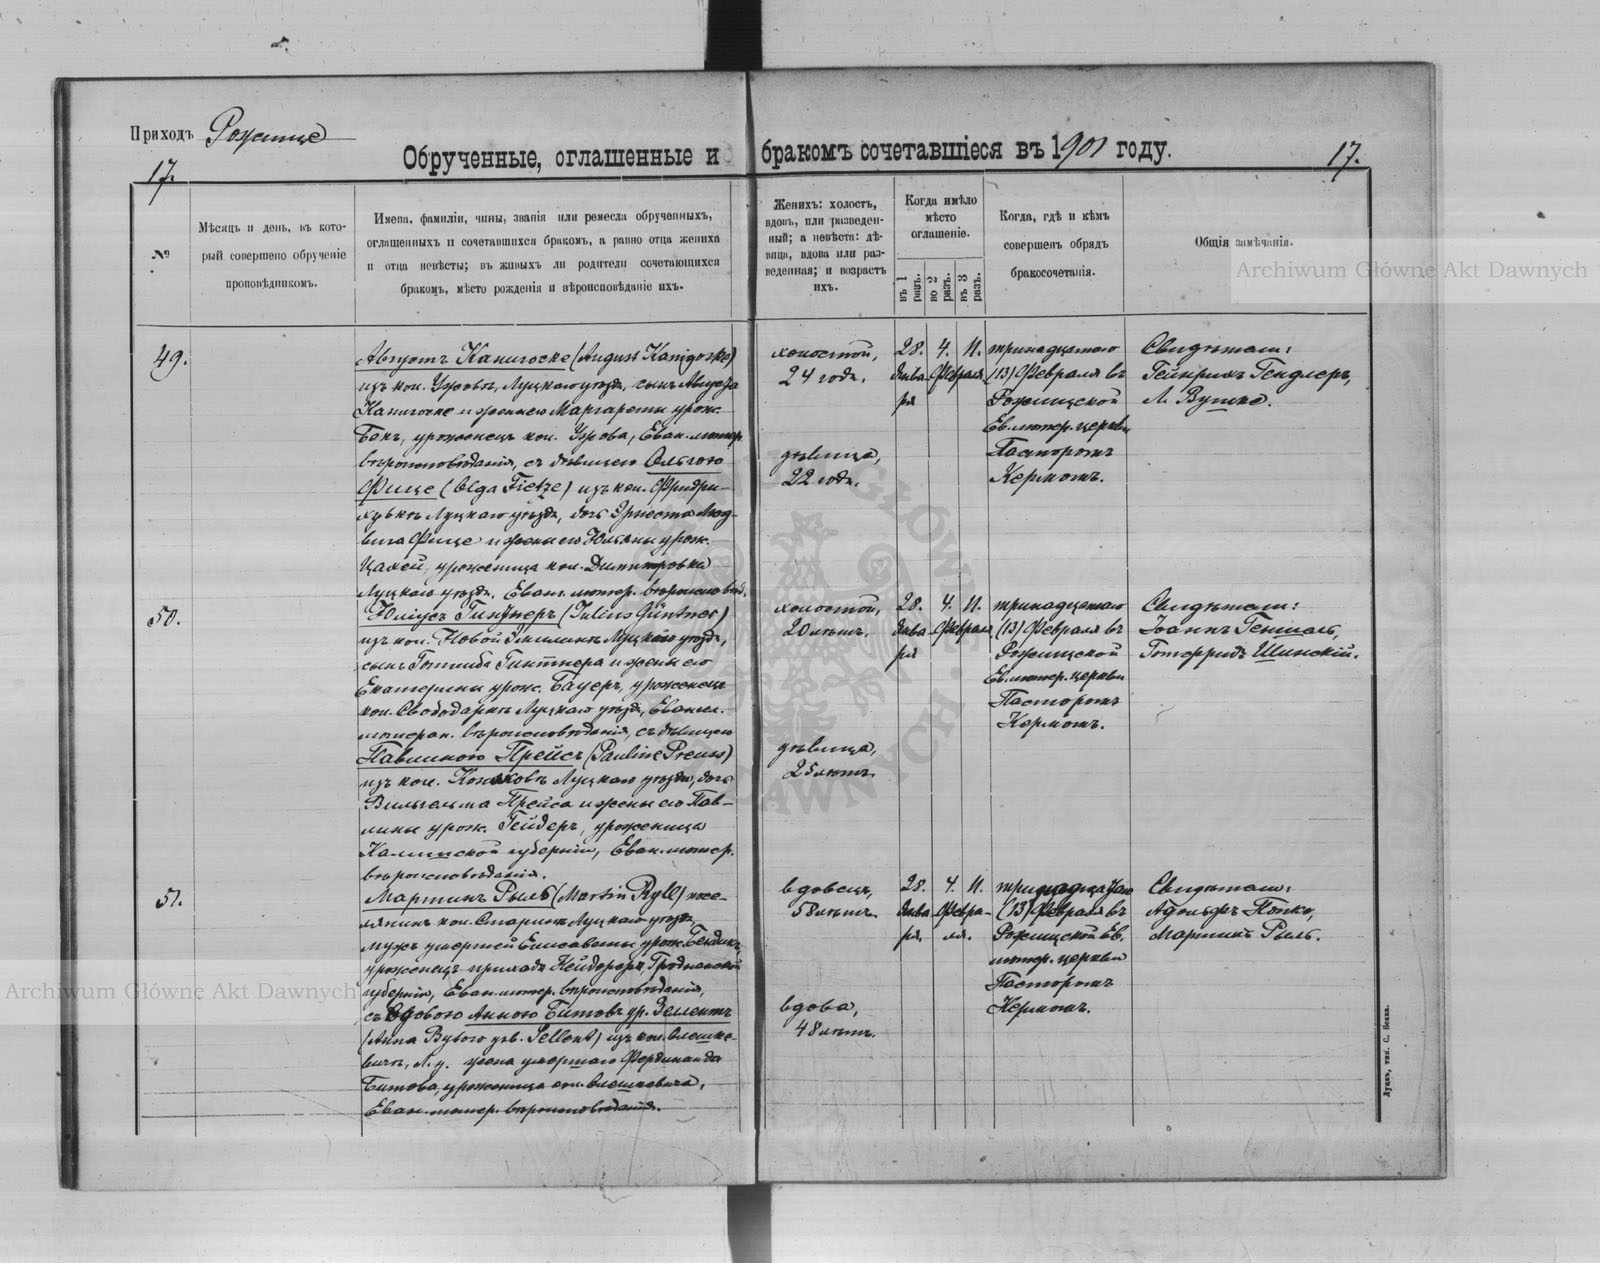 Приходъ Рожище
17.
Обрученные, оглашенные и бракомъ сочетавшіеся въ 1901 году.
17.
№
Мѣсяцъ и день, въ кото-
рый совершено обрученіе
проповѣдникомъ.
Имена, фамиліи, чины, званія или ремесла обрученныхъ,
оглашенныхъ и сочетавшихся бракомъ, а равно отца жениха
и отца невѣсты; въ живыхъ ли родители сочетающихся
бракомъ, мѣсто рожденія и вѣроисповѣданіе ихъ.
Женихъ: холостъ,
вдовъ, или разведен-
ный; а невѣста: дѣ-
вица, вдова или раз-
веденная; и возрастъ
ихъ.
Когда имѣло
мѣсто
оглашеніе.
въ 1 разъ.
во 2 разъ.
въ 3 разъ.
Когда, гдѣ и кѣмъ
совершенъ обрядъ
бракосочетанія.
Общія замѣчанія.
49.
Августъ Каниговске (August Kanigowske)
изъ кол. Ужовъ, Луцкаго уѣзда, сынъ Августа
и жены его Маргареты урож.
Бокъ, уроженецъ кол. Ужова, Еван. лютер.
вѣроисповѣданія, съ дѣвицею Ольгою
Фице (Olga Fietze) изъ кол. Фридри-
ховкъ Луцкаго уѣзда, дочь Эрнеста Люд-
вига Фице и жены его Юльяны урож.
Цахей, уроженица кол. Димитровки
Луцкаго уѣзда, Еванг. лютер. вѣроисповѣд.
холостой,
24 года.
дѣвица,
22 года.
28. Янва
ря
4. 11. Февраля
тринадцатаго
(13) Февраля въ
Рожищской
Ев. лютер. церкви
Пасторомъ
Кермомъ.
Свидѣтели:
Гейнрихъ Гендлеръ,
Л. Вушке.
50.
Юліусъ Гинтнеръ (Julius Güntner)
изъ кол. Новой Луцкаго уѣзда,
сынъ Готлиба Гинтнера и жены его
Екатерины урож. Бауеръ, уроженецъ
кол. Свободарка Луцкаго уѣзда, Евангел.
лютеран. вѣроисповѣданія, съ дѣвицею
Павлиною Прейсъ (Pauline Preuss)
изъ кол. Луцкаго уѣзда, дочь
Вильгельма Прейса и жены его Пав-
лины урож. Гейдеръ, уроженица
Калишской губерніи, Еван. лютер.
вѣроисповѣданія.
холостой,
20 лѣтъ.
дѣвица,
25 лѣтъ.
28. Янва
ря
4. 11. Февраля
тринадцатаго
(13) Февраля въ
Рожищской
Ев. лютер. церкви
Пасторомъ
Кермомъ.
Свидѣтели:
Іоаннъ Геншель,
Готфридъ Шинскій.
51.
Мартинъ Рыль (Martin Ryll) посе-
лянинъ кол. Луцкаго уѣзда,
мужъ умершей Елисаветы урож.
уроженецъ прихода Нейдорфъ, Гродненской
губерніи, Еван. лютер. вѣроисповѣданія,
съ вдовою Анною Битовъ ур. Зелентъ
(Anna geb. Sellent) изъ кол. Олешке-
вичъ, Л. у. жена умершаго Фердинанда
Битова, уроженица кол. Олешкевича,
Еван. лютер. вѣроисповѣданія.
вдовецъ,
58 лѣтъ.
вдова,
48 лѣтъ.
28. Янва
ря.
4. 11. Февра-
ля.
тринадцатаго
(13) Февраля въ
Рожищской Ев.
лютер. церкви
Пасторомъ
Кермомъ.
Свидѣтели:
Адольфъ Попко,
Мартинъ Рыль.
Луцкъ, тип. С. Бокка.
Archiwum Główne Akt Dawnych
Archiwum Główne Akt Dawnych